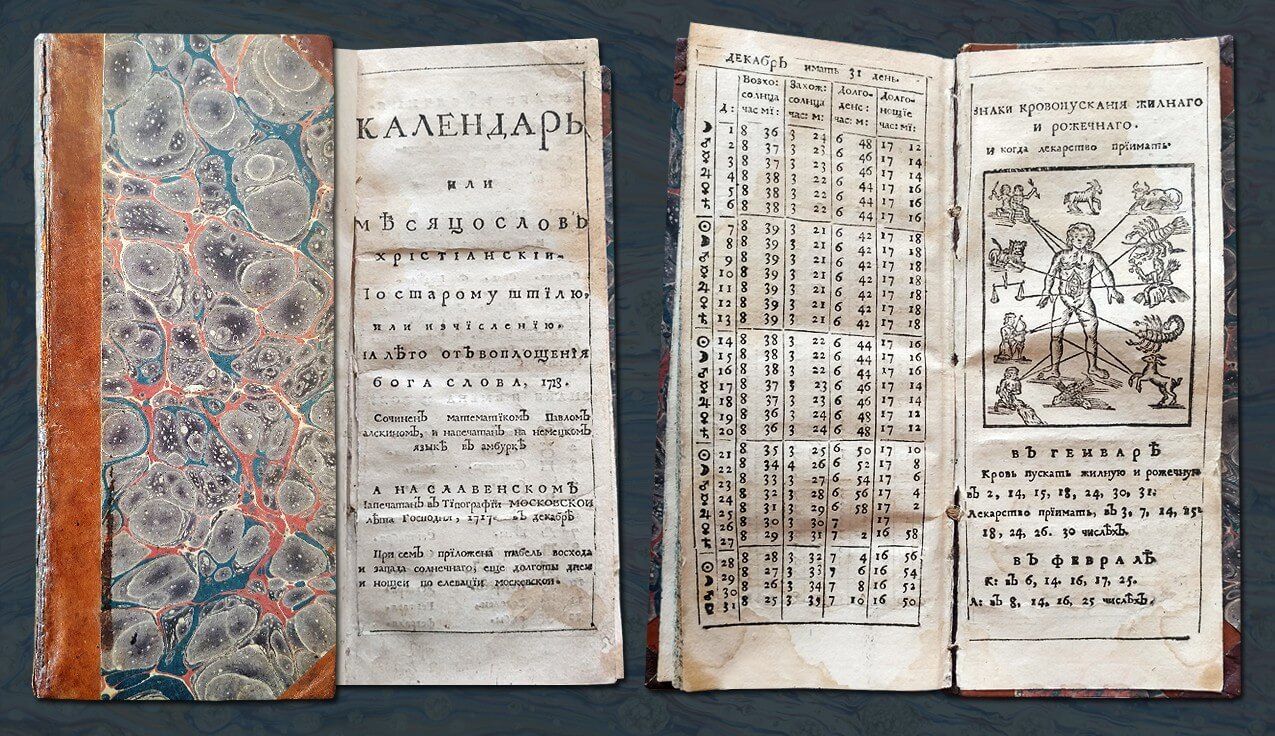 КАЛЕНДАРЬ
ИЛИ
МѢСЯЦОСЛОВЪ
ХРІСТІАНСКІИ.
По старому штілю,
или изчісленію.
НА ЛѢТО ОТЪ ВОПЛОЩЕНІЯ
БОГА СЛОВА, 1718.
Сочиненъ математікомъ Павломъ
алскиномъ, и напечатанъ на немецкомъ
языкѣ въ амбуркѣ
А НА СЛАВЕНСКОМЪ
Напечатанъ въ Тїпографїи МОСКОВСКОЙ
Лѣта Господня, 1717. въ декабрѣ
При семъ приложена табель восхода
и запада солнечнаго, еще долготы днеи
и нощеи по елеваціи московскои.
ДЕКАБРЬ имать 31 день.
Д: Возхо: солнца час: мі: Захож: солнца час: м: Долго- денс: час: м: Долго- нощіе час: мі:
☽ 1 8 36 3 24 6 48 17 12
♂ 2 8 37 3 23 6 46 17 14
☿ 3 8 37 3 23 6 46 17 14
♃ 4 8 38 3 22 6 44 17 16
♀ 5 8 38 3 22 6 44 17 16
♄ 6 8 38 3 22 6 44 17 16
☉ 7 8 39 3 21 6 42 17 18
☽ 8 8 39 3 21 6 42 17 18
♂ 9 8 39 3 21 6 42 17 18
☿ 10 8 39 3 21 6 42 17 18
♃ 11 8 39 3 21 6 42 17 18
♀ 12 8 39 3 21 6 42 17 18
♄ 13 8 39 3 21 6 42 17 18
☉ 14 8 38 3 22 6 44 17 16
☽ 15 8 38 3 22 6 44 17 16
♂ 16 8 38 3 22 6 44 17 16
☿ 17 8 37 3 23 6 46 17 14
♃ 18 8 37 3 23 6 46 17 14
♀ 19 8 36 3 24 6 48 17 12
♄ 20 8 36 3 24 6 48 17 12
☉ 21 8 35 3 25 6 50 17 10
☽ 22 8 34 4 26 6 52 17 8
♂ 23 8 33 3 27 6 54 17 6
☿ 24 8 32 3 28 6 56 17 4
♃ 25 8 31 3 29 6 58 17 2
♀ 26 8 30 3 30 7 17
♄ 27 8 29 3 31 7 2 16 58
☉ 28 8 28 3 32 7 4 16 56
☽ 29 8 27 3 33 7 6 16 54
♂ 30 8 26 3 34 7 8 16 52
☿ 31 8 25 3 35 7 10 16 50
ЗНАКИ КРОВОПУСКАНІЯ ЖИЛНАГО
И РОЖЕЧНАГО.
И когда лекарство прїимать.
ВЪ ГЕНВАРѢ
Кровь пускать жилную и рожечную
въ 2, 14, 15, 18, 24, 30, 31.
Лекарство прїимать, въ 3, 7, 14, 15.
18, 24, 26. 30 числѣхъ.
ВЪ ФЕВРАЛѢ
К: въ 6, 14. 16, 17, 25.
Л: въ 8, 14. 16, 25 числѣхъ.